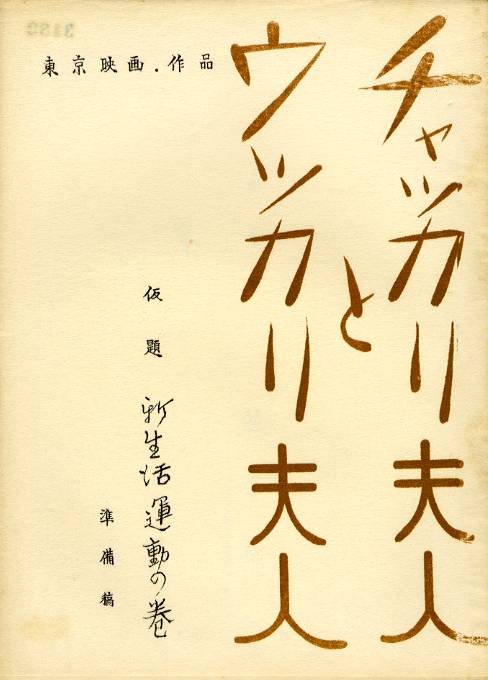 チャッカリ夫人
と
ウッカリ夫人
東京映画・作品
仮題 新生活運動の巻
準備稿